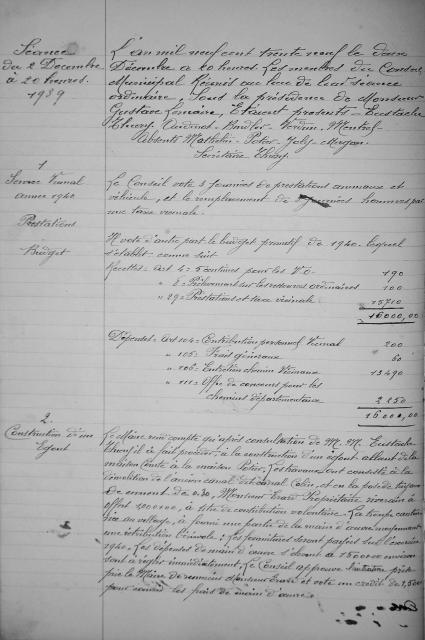 Séance
du 2 Décembre
à 20 heures.
1939
L'an mil neuf cent trente neuf le deux
Décembre à 20 heures. Les membres du Conseil
Municipal Réunis au lieu de leur séance
ordinaire, sous la présidence de Monsieur
Gustave Lemaire, Etaient présents - Eustache
Thiery
Absents Mathelin - Peter - Joly - Morgan.
Secrétaire Thiery
1
Service Vicinal
année 1940
Prestations
Budget
Le Conseil vote 3 journées de prestations animaux et
véhicule, et le remplacement de 3 journées hommes par
une taxe vicinale.
Il vote d'autre part le budget primitif de 1940 lequel
s'établit comme suit
Recettes - Art 4 = 5 centimes pour les V.O 190
" 8 = Prélèvement sur les revenus ordinaires 100
" 29 = Prestations et taxe vicinale 15710
16000,00
Dépenses - Art 104 = Contribution personnel Vicinal 200
" 105 = Frais généraux 60
" 106 = Entretien chemins Vicinaux 13490
" 111 = Offre de concours pour les
chemins départementaux 2250
16000,00
2.
Construction d'un
Egout
Le Maire rend compte qu'après consultation de M. M. Eustache
Thiery il a fait procéder, à la construction d'un égout allant de la
maison à la maison Peter. Les travaux ont consisté à la
démolition de l'ancien canal et en la pose de tuyaux
de ciment de 0.30, Monsieur Evrard Propriétaire riverain à
offert 1000,00, à titre de contribution volontaire. La troupe
au village, à fourni une partie de la main d'œuvre moyennant
une rétribution. Les fournitures seront payées sur l'exercice
1940. Les dépenses de main d'œuvre s'élevant à 1500,00 environ
sont à régler immédiatement. Le Conseil approuve l'initiative
prie le Maire de remercier Monsieur Evrard et vote un crédit de 1,500
pour les frais de main d'œuvre.